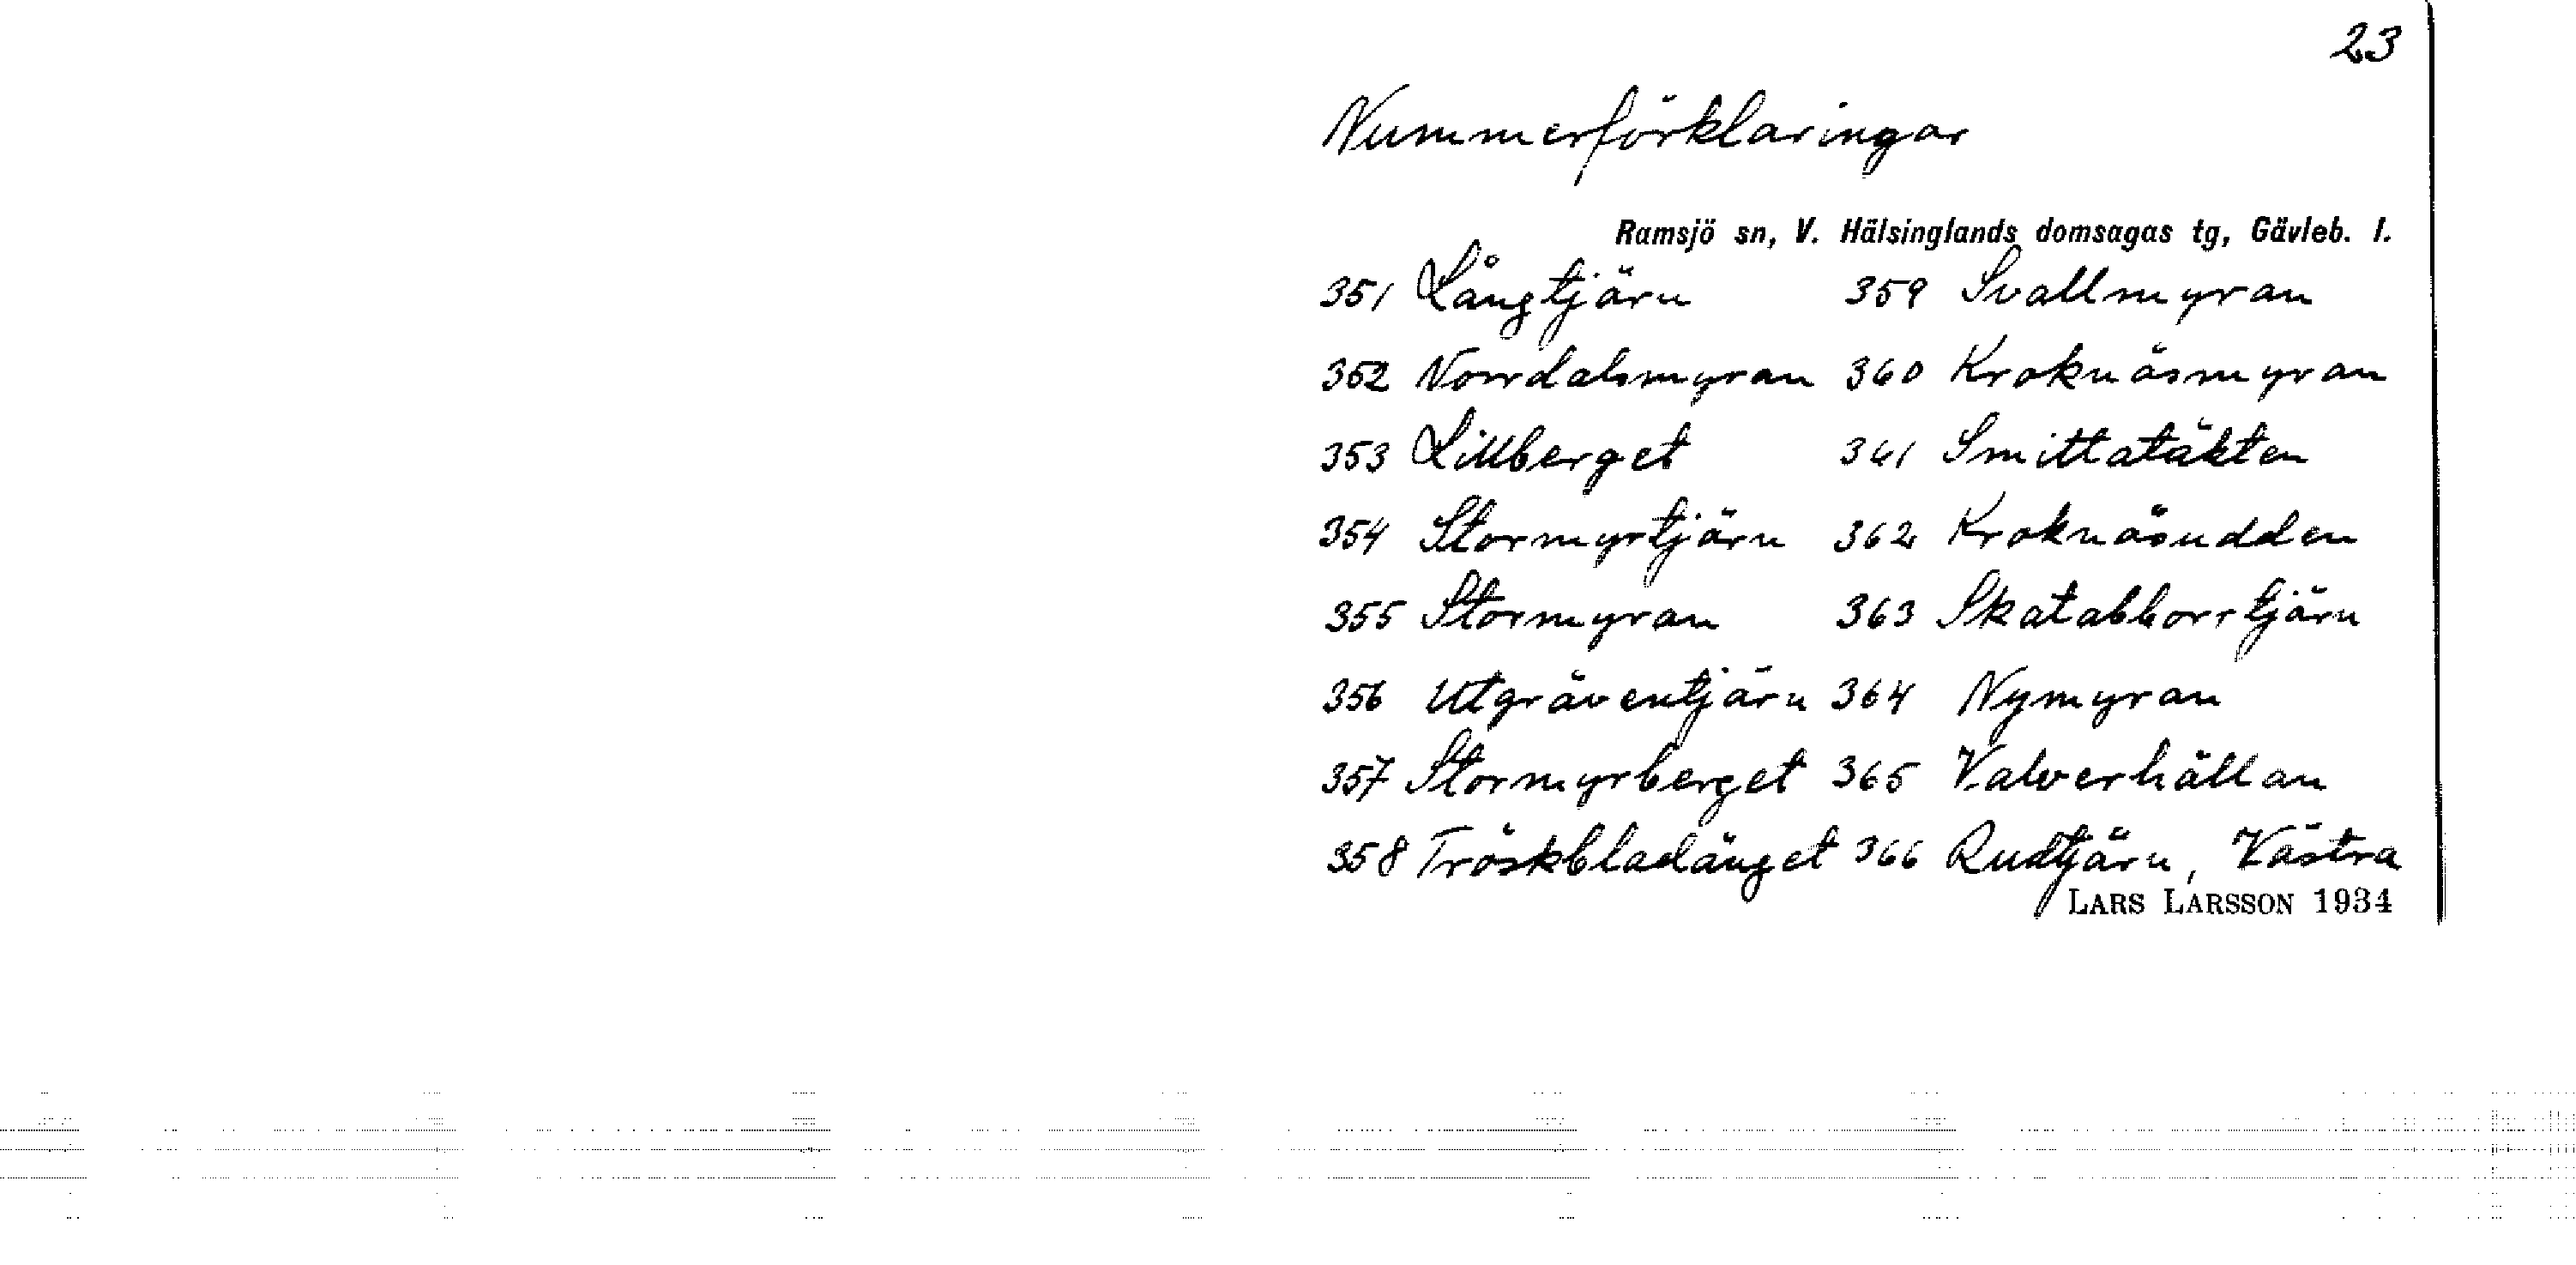 23
Nummerförklaringar
Ramsjö sn, V. Hälsinglands domsagas tg, Gävleb. l.
351 Långtjärn 359 Svallmyran
352 Norrdalsmyran 360 Kroknäsmyran
353 Lillberget 361 Smittatäkten
354 Stormyrtjärn 362 Kroknäsudden
355 Stormyran 363 Skatabborrtjärn
356 Utgräventjärn 364 Nymyran
357 Stormyrberget 365 Valverhällan
358 Tröskbladänget 366 Rudtjärn, Västra
LARS LARSSON 1934